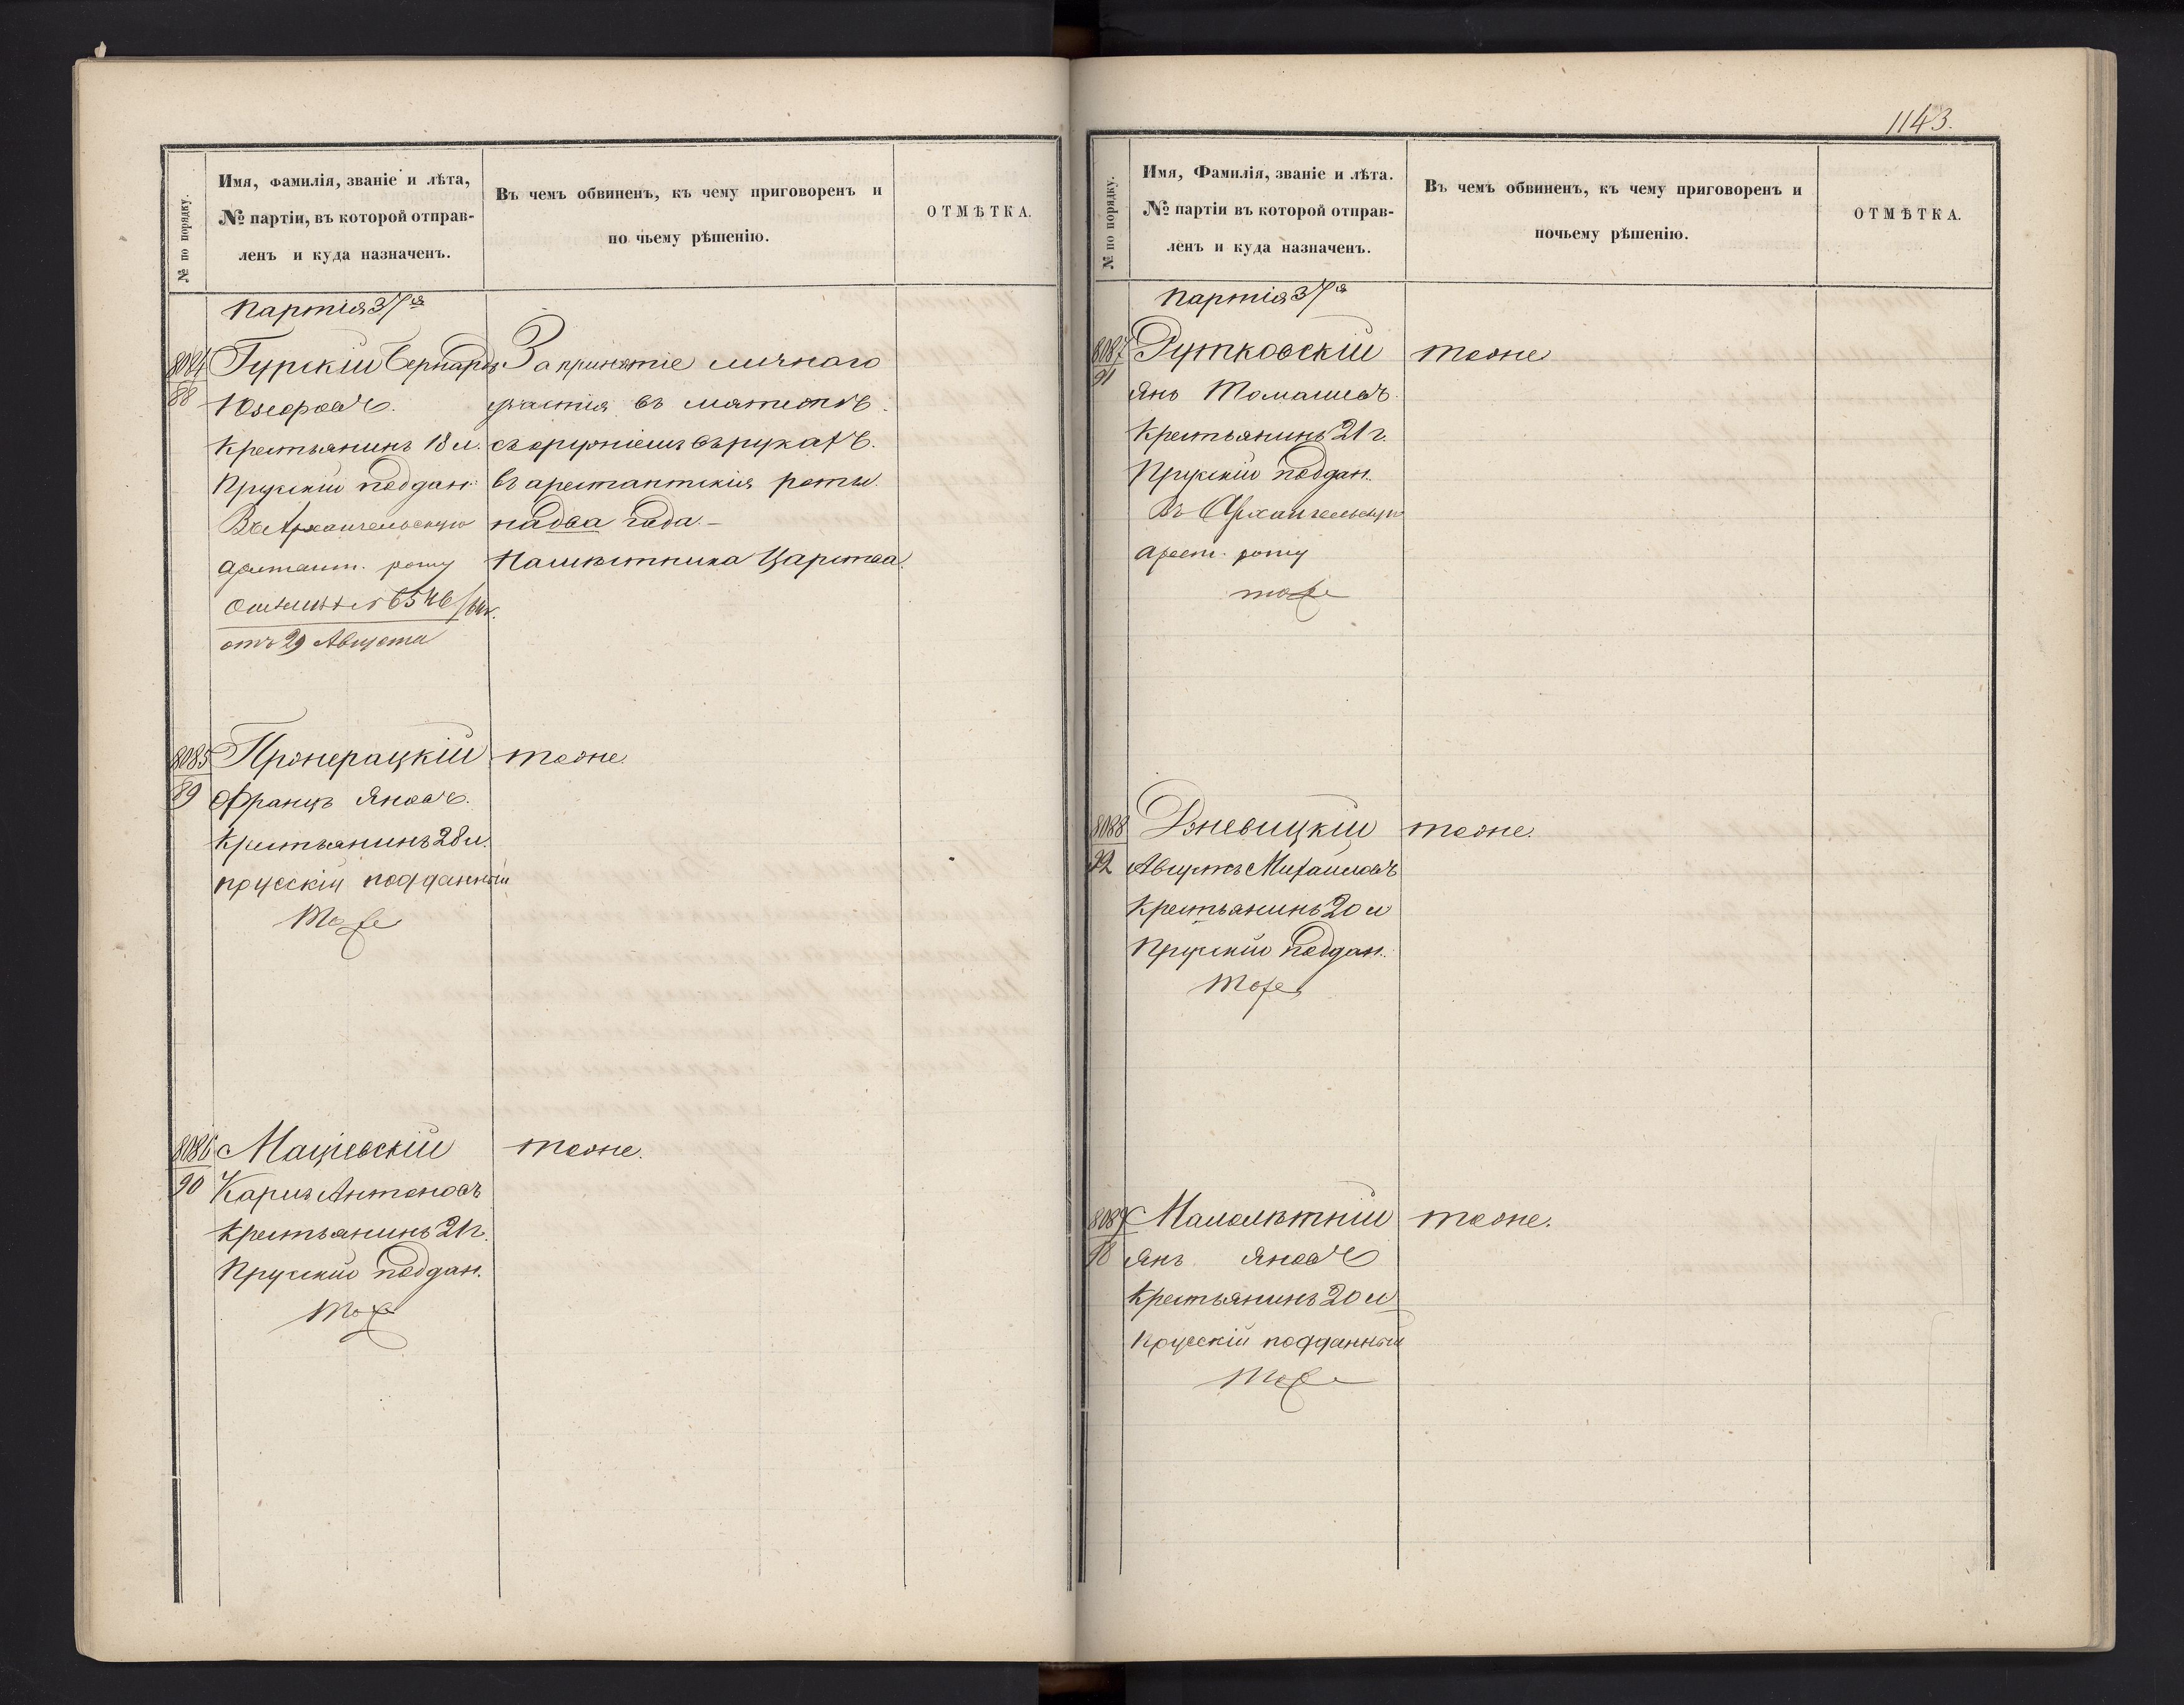 № по порядку.
Имя, фамилія, званіе и лѣта,
№ партіи, въ которой отправ-
ленъ и куда назначенъ.
Въ чемъ обвиненъ, къ чему приговоренъ и
по чьему рѣшенію.
ОТМѢТКА.
Партія 37я
8084
88
Гурскій Бернардъ
Юзефовъ.
Крестьянинъ 18 л.
Прускій поддан.
Въ Архангельскую
арестант. роту
отъ 29 Августа
За принятіе личнаго
участія въ мятежѣ
съ оружіемъ въ рукахъ.
въ арестантскія роты
на два года.—
Намѣстника Царства.
8085
89
Францъ Яновъ.
Крестьянинъ 28 л.
прусскій подданный
Тоже
тоже.
8086
90
Мацѣевскій
Карлъ Антоновъ
Крестьянинъ 21 г.
Прускій поддан.
Тоже
тоже.
1143.
№ по порядку.
Имя, Фамилія, званіе и лѣта.
№ партіи въ которой отправ-
ленъ и куда назначенъ.
Въ чемъ обвиненъ, къ чему приговоренъ и
почьему рѣшенію.
ОТМѢТКА.
Партія 37я
8087
91
Рутковскій
Янъ Томашевъ.
Крестьянинъ 21 г.
Прускій поддан.
Въ Архангельскую
арест. роту
тоже
тоже
8088
92
Августъ Михайловъ
Крестьянинъ 20 л
Прускій поддан.
Тоже
тоже.
8089
Малолѣтній
Янъ Яновъ
Крестьянинъ 20 л
Прусскій подданный
Тоже
тоже.